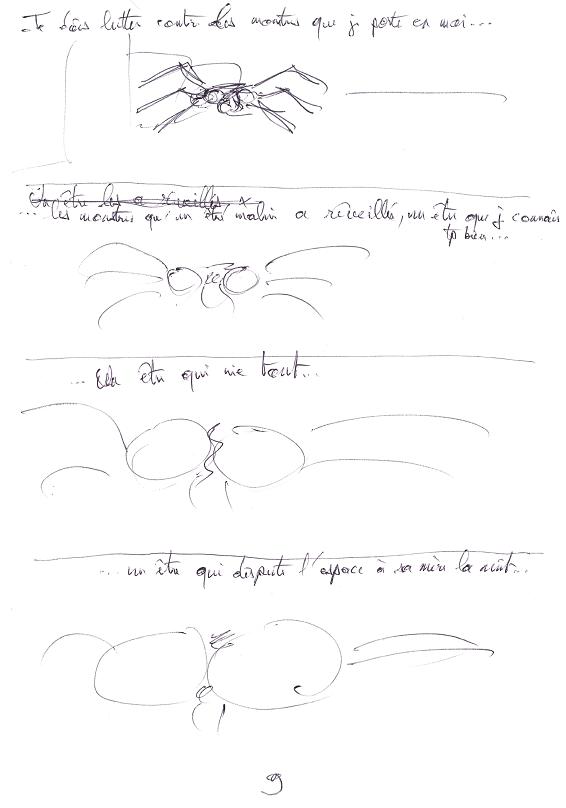 Je dois lutter contre les monstres que je porte en moi...
Un être les a réveillés
... les monstres qu'un être malin a réveillés, un être que je connais
tp bien...
... un être qui nie tout...
... un être qui dispute l'espace à sa mère la nuit...
9